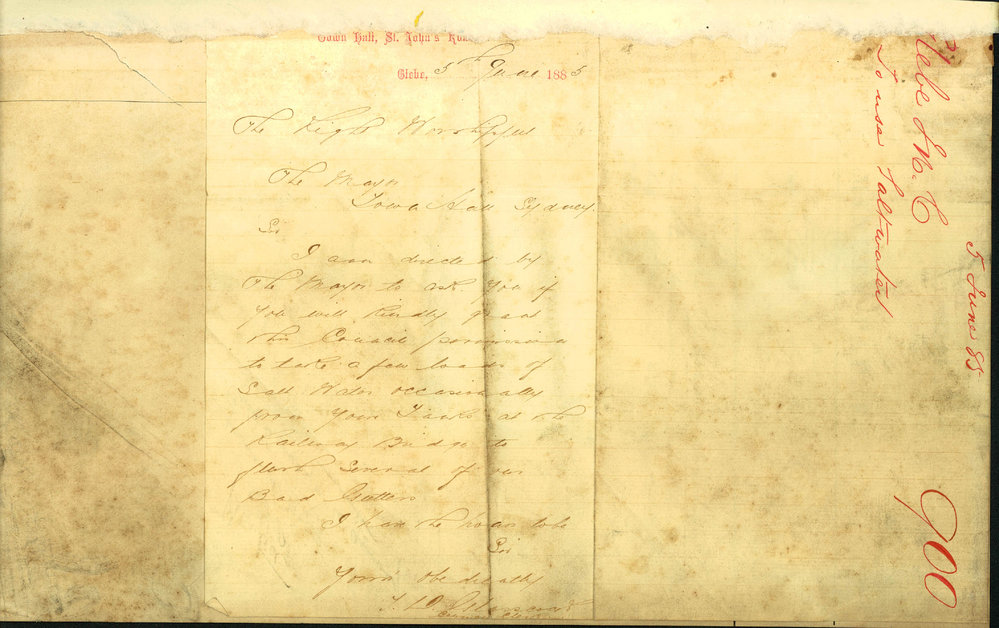 Town Hall, St. John's
Glebe, 5th June 1885
The Right Worshipful
The Mayor
Town Hall Sydney.
Sir
I am directed by
The Mayor to ask You if
You will kindly grant
this Council permission
to take a few loads of
Salt Water occasionally
from Your Tanks at the
Railway Bridge to
flush Several of our
Bad Gutters
I have the honor to be
Sir
Yours obediently
Council Clerk
Glebe
To use Saltwater
5 June 85
900